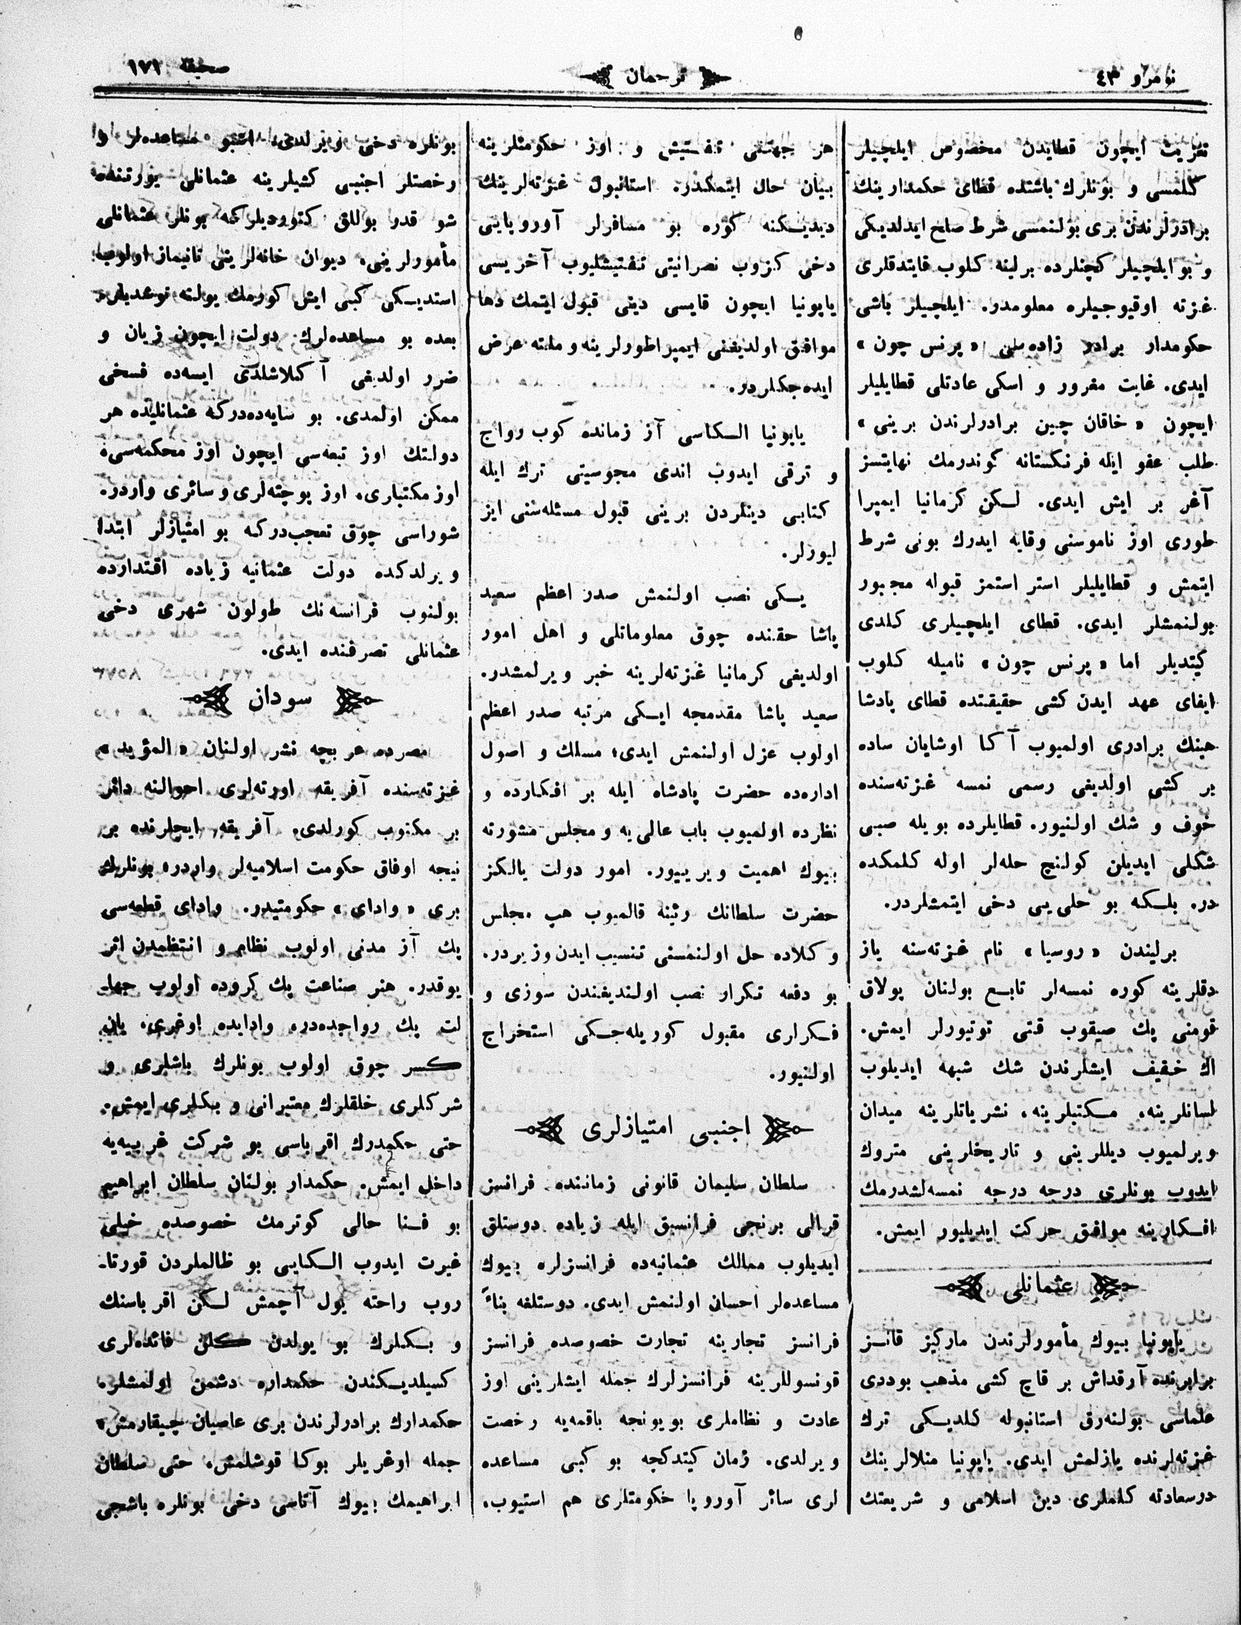 نومرو ٤٣
ترجمان
صحيفه ١٧١
تعزيت ايچون قطايدن مخصوص ايلچيلر
كلمسى و بونلرك باشنده قطاى حكمدارينك
برادرلرندن برى بولنمسى شرط صلح ايدلديكى
و بو ايلچيلر كچنلرده برلينه كلوب قايتدقلرى
غزته اوقيوجيلره معلومدر. ايلچيلر باشى
حكومدار برادر زاده‌سى «پرنس چون»
ايدى. غايت مغرور و اسكى عادتلى قطايليلر
ايچون «خاقان چين برادرلرندن برينى»
طلب عفو ايله فرنكستانه كوندرمك نهايتسز
آغر بر ايش ايدى. لكن كرمانيا ايمپرا
طورى اوز ناموسنى وقايه ايدرك بونى شرط
ايتمش و قطايليلر استر استمز قبوله مجبور
بولنمشلر ايدى. قطاى ايلچيلرى كلدى
كيتديلر اما «پرنس چون» ناميله كلوب
ايفاى عهد ايدن كشى حقيقتنده قطاى پادشا
هينك برادرى اولميوب آكا اوشايان ساده
بر كشى اولديغى رسمى نمسه غزته‌سنده
خوف و شك اولنيور. قطايلرده بويله صبى
شكلى ايديلن كولنچ حله‌لر اوله كلمكده
در. بلكه بو حلى‌يى دخى ايتمشلردر.
برليندن «روسيا» نام غزته‌سنه ياز
دقلرينه كوره نمسه‌لر تابع بولنان پولاق
قومنى پك صيقوب قتى توتيورلر ايمش.
اك خفيف ايشلرندن شك شبهه ايديلوب
لسانلرينه، مكتبلرينه، نشرياتلرينه ميدان
ويرلميوب ديللرينى و تاريخلرينى متروك
ايدوب بونلرى درجه درجه نمسه‌لشدرمك
افكارينه موافق حركت ايديليور ايمش.
عثمانلى
ياپونيا بيوك مأمورلرندن ماركيز قانز
برابرنده آرقداش بر قاچ كشى مذهب بوددى
علماسى بولنه‌رق استانبوله كلديكى ترك
غزته‌لرنده يازلمش ايدى. ياپونيا منلالرينك
درسعادته كلملرى دين اسلامى و شريعتك
هر جهتنى تفتيش و اوز حكومتلرينه
بيان حال ايتمكدر. استانبول غزته‌لرينك
ديديكنه كوره بو مسافرلر آوروپايى
دخى كزوب نصرانيتى تفتيشليوب آخريسى
ياپونيا ايچون قايسى دينى قبول ايتمك دها
موافق اولديغنى ايمپراطورلرينه و ملته عرض
ايده‌جكلردر.
ياپونيا الكاسى آز زمانده كوب رواج
و ترقى ايدوب اندى مجوسيتى ترك ايله
كتابى دينلردن برينى قبول مسئله‌سنى ايز
ليورلر.
يكى نصب اولنمش صدر اعظم سعيد
پاشا حقنده چوق معلوماتلى و اهل امور
اولديغى كرمانيا غزته‌لرينه خبر ويرلمشدر.
سعيد پاشا مقدمجه ايكى مرتبه صدر اعظم
اولوب عزل اولنمش ايدى؛ مسلك و اصول
اداره‌ده حضرت پادشاه ايله بر افكارده و
نظرده اولميوب باب عالى‌يه و مجلس مشورته
بيوك اهميت ويرييور. امور دولت يالكز
حضرت سلطانك رئينه قالميوب هپ مجلس
وكلاده حل اولنمسنى تنسيب ايدن وزيردر.
بو دفعه تكرار نصب اولنديغندن سوزى و
فكرارى مقبول كوريله‌جكى استخراج
اولنيور.
اجنبى امتيازلرى
سلطان سليمان قانونى زماننده فرانسز
قرالى برنجى فرانسيق ايله زياده دوستلق
ايديلوب ممالك عثمانيه‌ده فرانسزلره بيوك
مساعده‌لر احسان اولنمش ايدى. دوستلغه بناءً
فرانسز تجارينه تجارت خصوصده فرانسز
قونسوللرينه فرانسزلرك جمله ايشلرينى اوز
عادت و نظاملرى بويونجه باقمه‌يه رخصت
ويرلدى. زمان كيتدكجه بو كبى مساعده
لرى سائر آوروپا حكومتلرى هم استيوب،
بونلره دخى ويرلدى. اشبو مساعده‌لر و
رخصتلر اجنبى كشيلرينه عثمانلى يورتنده
شو قدر بوللق كتورديلركه بونلر عثمانلى
مأمورلرينى، ديوان خانه‌لرينى تانيماز اولوب
استديكى كبى ايش كورمك يولنه توغديلر.
بعده بو مساعده‌لرك دولت ايچون زيان و
ضرر اولديغى آكلاشلدى ايسه‌ده فسخى
ممكن اولمدى. بو سايه‌ده‌دركه عثمانليده هر
دولتك اوز تبعه‌سى ايچون اوز محكمه‌سى،
اوز مكتبارى، اوز پوچته‌لرى و سائرى واردر.
شوراسى چوق تعجب‌دركه بو امتيازلر ابتدا
ويرلدكده دولت عثمانيه زياده اقتدارده
بولنوب فرانسه‌نك طولون شهرى دخى
عثمانلى تصرفنده ايدى.
سودان
مصرده عربچه نشر اولنان «المؤيد»
غزته‌سنده آفريقه اورته‌لرى احوالنه دائر
بر مكتوب كورلدى. آفريقه ايچلرنده بر
نيجه اوفاق حكومت اسلاميه‌لر واردر؛ بونلريك
برى «واداى» حكومتيدر. واداى قطعه‌سى
پك آز مدنى اولوب نظام و انتظمدن اثر
يوقدر. هنر صناعت پك كروده اولوب جها
لت پك رواجده‌در. وادايده اوغرى، يان
كسر چوق اولوب بونلرك باشلرى و
شركلرى خلقلرك معتبرانى و بكلرى ايمش.
حتى حكمدرك اقرباسى بو شركت غريبه‌يه
داخل ايمش. حكمدار بولنان سلطان ابراهيم
بو فنا حالى كوترمك خصوصده خيلى
غيرت ايدوب الكايى بو ظالملردن قورتا-
روب راحته يول آچمش لكن اقرباسنك
و بكلرك بو يولدن كلن فائده‌لرى
كسيلديكندن حكمداره دشمن اولمشلر.
حكمدارك برادرلرندن برى عاصيان چيقارمش؛
جمله اوغريلر بوكا قوشلمش، حتى سلطان
ابراهيمك بيوك آتاسى دخى بونلره باشجى